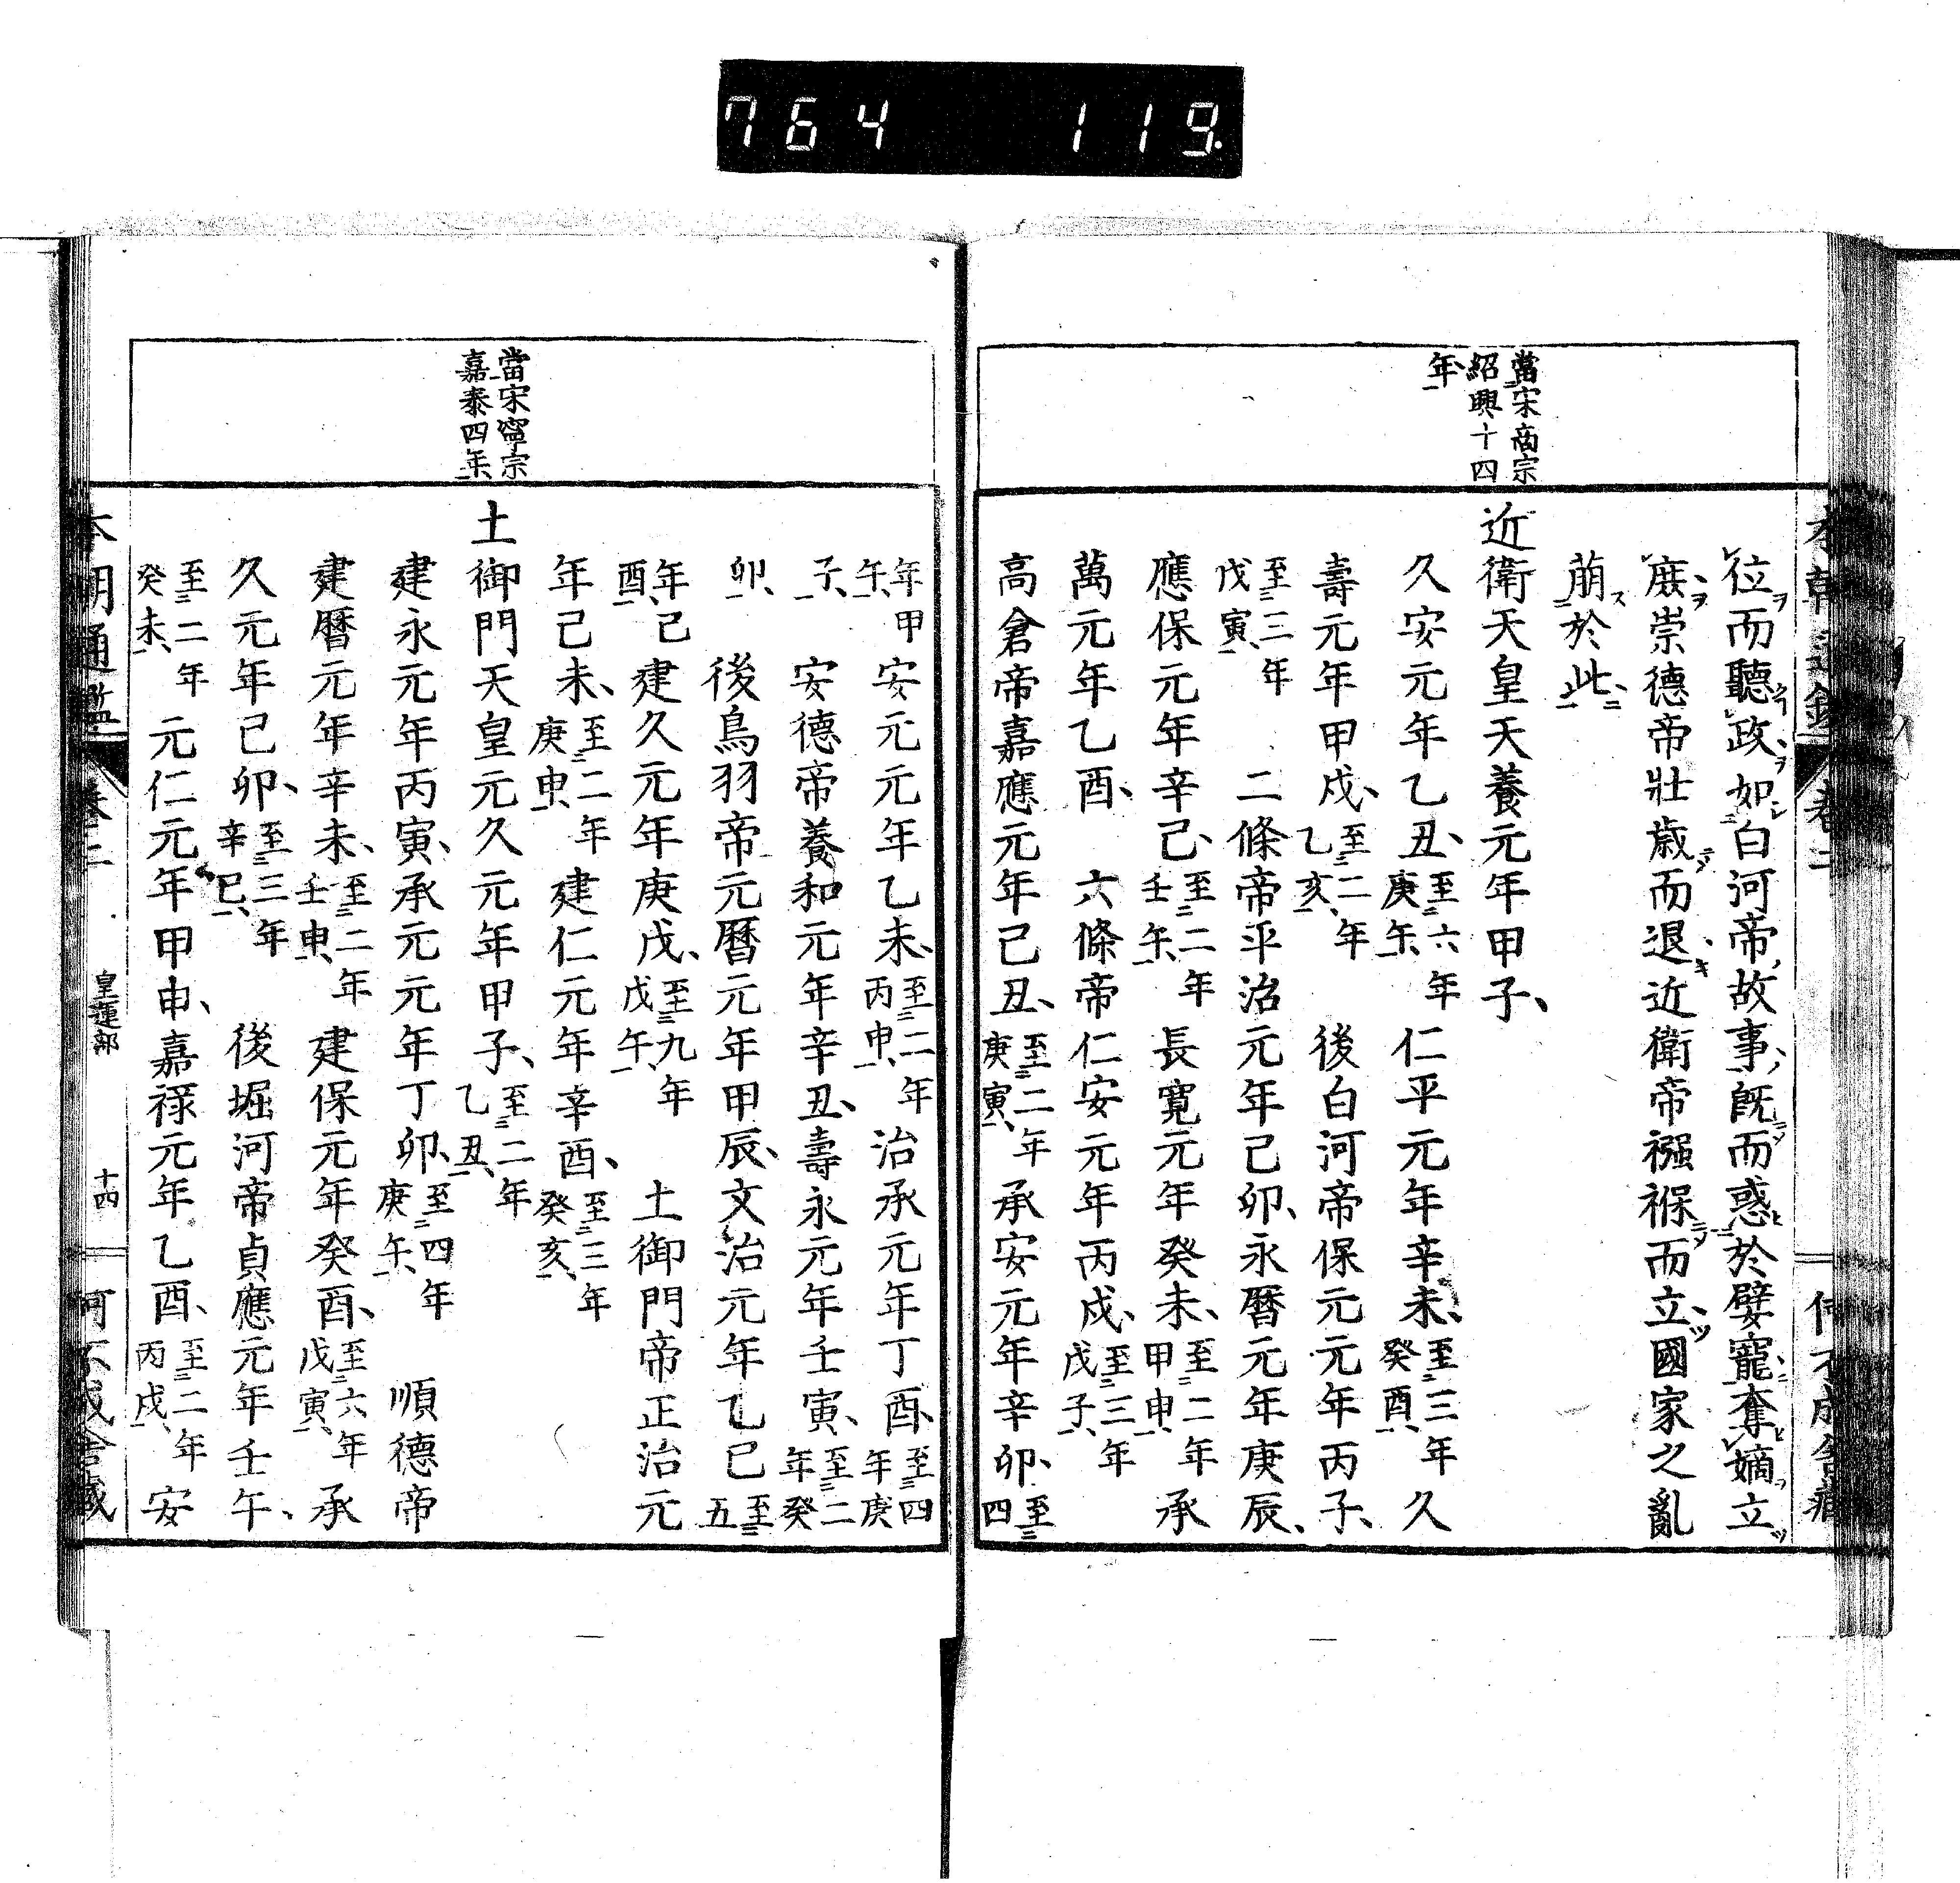 764 119
當宋高宗
紹興十四
年
位而聽政如白河帝故事既而惑於嬖寵奪嫡立
庶崇德帝壯歳而退近衛帝襁褓而立國家之亂
萠於此
近衛天皇天養元年甲子
久安元年乙丑至六年庚午仁平元年辛未至三年癸酉久
壽元年甲戌至二年乙亥後白河帝保元元年丙子
至三年戊寅二條帝平治元年己卯永曆元年庚辰
應保元年辛己至二年壬午長寛元年癸未至二年甲申承
萬元年乙酉六條帝仁安元年丙戌至三年戊子
高倉帝嘉應元年己丑至二年庚寅承安元年辛卯至四
當宋寧宗
嘉泰四年
年甲午安元元年乙未至二年丙申治承元年丁酉至四年庚
子安德帝養和元年辛丑壽永元年壬寅至二年癸
卯後鳥羽帝元曆元年甲辰文治元年乙巳至五
年己酉建久元年庚戌至九年戊午土御門帝正治元
年己未至二年庚申建仁元年辛酉至三年癸亥
土御門天皇元久元年甲子至二年乙丑
建永元年丙寅承元元年丁卯至四年庚午順德帝
建曆元年辛未至二年壬申建保元年癸酉至六年戊寅承
久元年己卯至三年辛巳後堀河帝貞應元年壬午
至二年癸未元仁元年甲申嘉禄元年乙酉至二年丙戌安
本朝通鑑 卷二 皇運部 十四 何不成舎藏